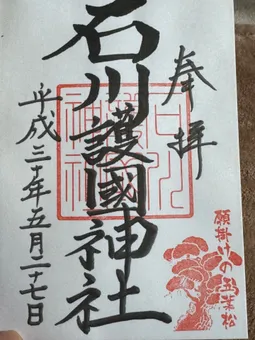 奉拝
石川護國神社
平成三十年五月二十七日
願掛けの